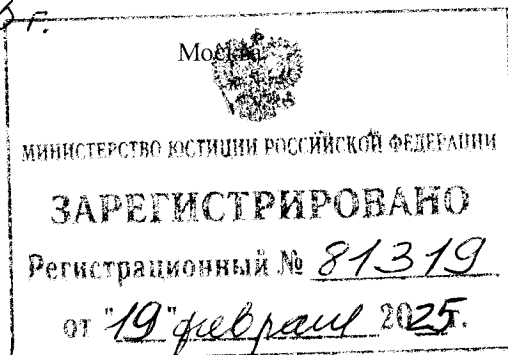 г.
Москва
МИНИСТЕРСТВО ЮСТИЦИИ РОССИЙСКОЙ ФЕДЕРАЦИИ
ЗАРЕГИСТРИРОВАНО
Регистрационный № 81319
от "19" февраля 2025г.